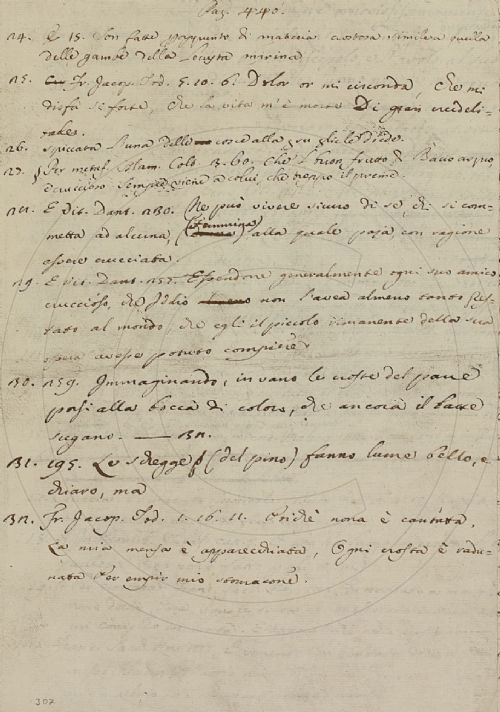 Pag. 440.
24. E 15. Son fatte di materia crostosa simile a quella
delle gambe della Locusta marina
25. Fr. Jacop. Tod. 5. 10. 6. Dolor or mi circonda, Che mi
disfà sì forte, Che la vita m'è morte Di gran crudeli-
tate.
26. spiccata l'una delle cosce alla gru gliele diede.
27. Per metaf. Colam. Colt. 360. che il buon frutto di Bacco aspro,
e cruccioso sempre viene a colui, che troppo il preme.
28. E Vit. Dant. 230. Ne può vivere sicuro di se, di si com-
metta ad alcuna, (femmina) alla quale paja con ragione
essere crucciata.
29. E Vit. Dant. 257. Essendone generalmente ogni suo amico
cruccioso, che Iddio non l'avea almeno tanto pres-
tato al mondo, che egli il piccolo rimanente della sua
opera avesse potuto compiere
30. 259. Immaginando, in vano le croste del pane
porsi alla bocca di coloro, che ancora il latte
sugano. — 32.
31. 195. Le schegge (del pino) fanno lume bello, e
chiaro, ma
32. Fr. Jacop. Tod. 1. 16. 11. Poichè nona è cantata,
La mia mensa è apparecchiata, Ogni crosta è radu-
nata Per empir mio stomacone.
307